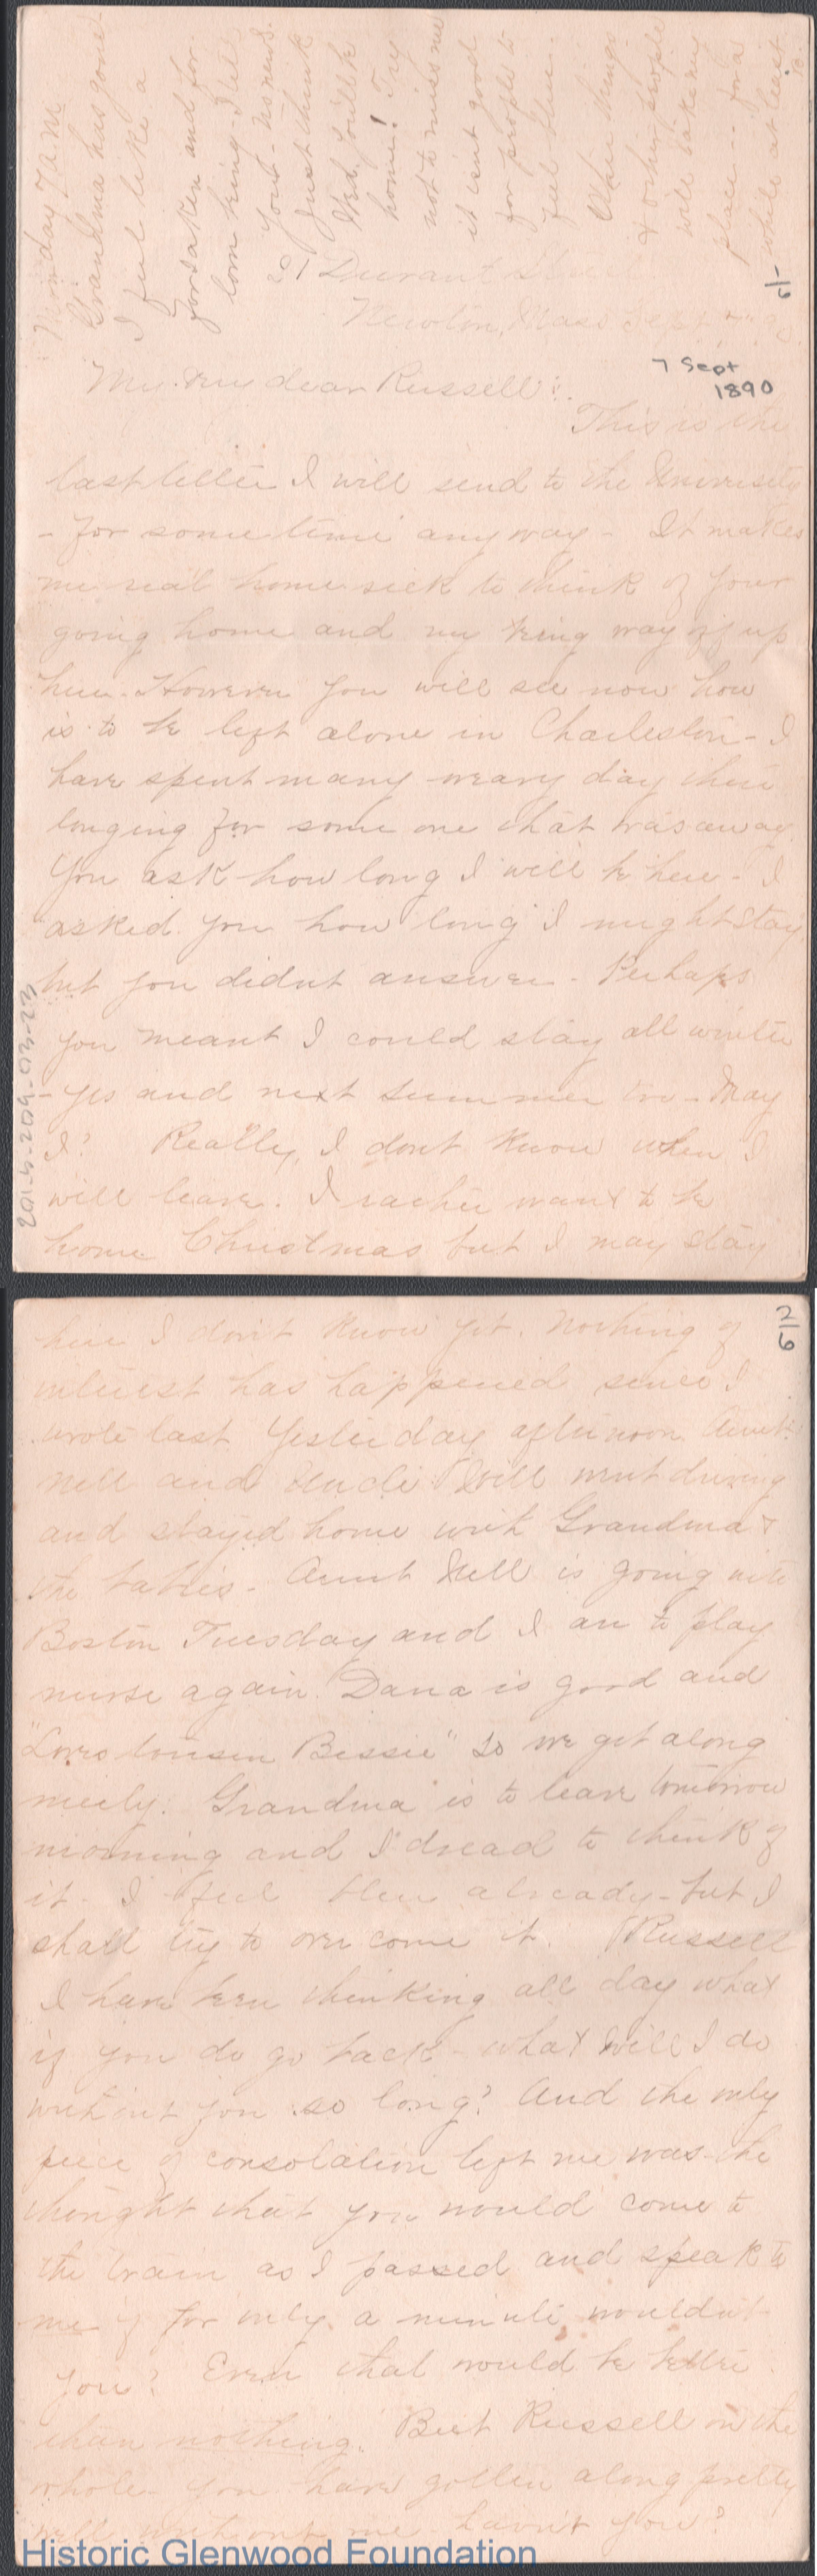 Monday 7 a.m.
Grandma has gone
I feel like a
forsaken and for-
lorn being - I let
you - no news.
Just think
that you'll be
home! Try
not to miss me
it isnt good
for people to
feel blue.
Other things
& other people
will take my
place -- for a
while at least
201 Durant Street
Newton, Mass Sept 7th 90
1/6
7 Sept
1890
My own dear Russell:
This is the
last letter I will send to the University
- for some time any way - It makes
me real home sick to think of your
going home and my being way off up
here. However you will see now how
is to be left alone in Charleston - I
have spent many weary day there
longing for some one that was away.
You ask how long I will be here - I
asked you how long I might stay
but you didnt answer - Perhaps
you meant I could stay all winter
- yes and next summer too - May
I? Really, I dont know when I
will leave. I rather want to be
home Christmas but I may stay
201-5-209-93-23
2/6
here I don't know yet. Nothing of
interest has happened since I
wrote last. Yesterday afternoon Aunt
Nell and Uncle Will went driving
and stayed home with Grandma &
the babies - Aunt Nell is going into
Boston Tuesday and I am to play
nurse again. Dana is good and
"Loves Cousin Bessie" so we get along
nicely. Grandma is to leave tomorrow
morning and I dread to think of
it - I feel blue already - but I
shall try to over come it. Russell
I have been thinking all day what
if you do go back - what will I do
without you so long? And the only
piece of consolation left me was the
thought that you would come to
the train as I passed and speak to
me if for only a minute, wouldn't
you? Even that would be better
than nothing. But Russell on the
whole you have gotten along pretty
well without me - havn't you?
Historic Glenwood Foundation